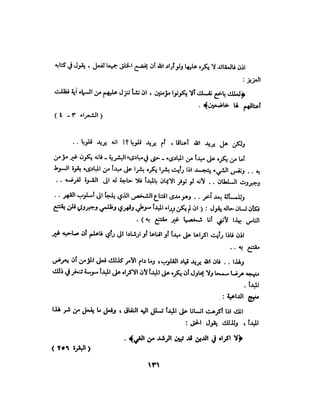 اذن فالعقائد لا يكره عليها ولو أراد الله أن يخضع الخلق جميعا لفعل ، يقول في كتابه
العزيز :
﴿ لعلك باخع نفسك ألا يكونوا مؤمنين ، ان نشأ ننزل عليهم من السماء آية فظلت
أعناقهم لها خاضعين ﴾ .
( الشعراء ٣ - ٤ )
ولكن هل يريد الله أعناقا ، أم يريد قلوبا ؟! انه يريد قلوبا ..
أما من يكره على مبدأ من المبادىء - حتى في مبادىء البشرية - فانه يكون غير مؤمن
به .. ونفس الشيء يتجسد اذا رأيت بشرا يكره بشرا على مبدأ من المبادىء بقوة السوط
وجبروت السلطان .. لأنه لو توفر الايمان بالمبدأ فلا حاجة له الى القسوة لفرضه ..
وللمسألة بعد آخر .. وهو مدى اقتناع الشخص الذي يلجأ الى أسلوب القهر ..
فكأن لسان حاله يقول : ( ان لم يكن وراء المبدأ سوطي وقهري وظلمي وجبروتي فلن يقتنع
الناس بهذا لأنني أنا شخصيا غير مقتنع به ) .
اذن فاذا رأيت اكراها على مبدأ أو اقناعا أو ارشادا الى رأي فاعلم أن صاحبه غير
مقتنع به ..
وهذا .. فان الله يريد قياد القلوب ، وما دام الأمر كذلك فعلى المؤمن أن يعرض
منهجه عرضا سمحا ولا يحاول أن يكره على المبدأ لأن الاكراه على المبدأ سوسة تنخر في ذلك
المبدأ .
منهج الداعية :
انك اذا أكرهت انسانا على مبدأ تسلق اليه النفاق ، وفعل ما يفعل من شر لهذا
المبدأ ، ولذلك يقول الحق :
﴿ لا اكراه في الدين قد تبين الرشد من الغي ﴾ .
( البقرة ٢٥٦ )
١٣١